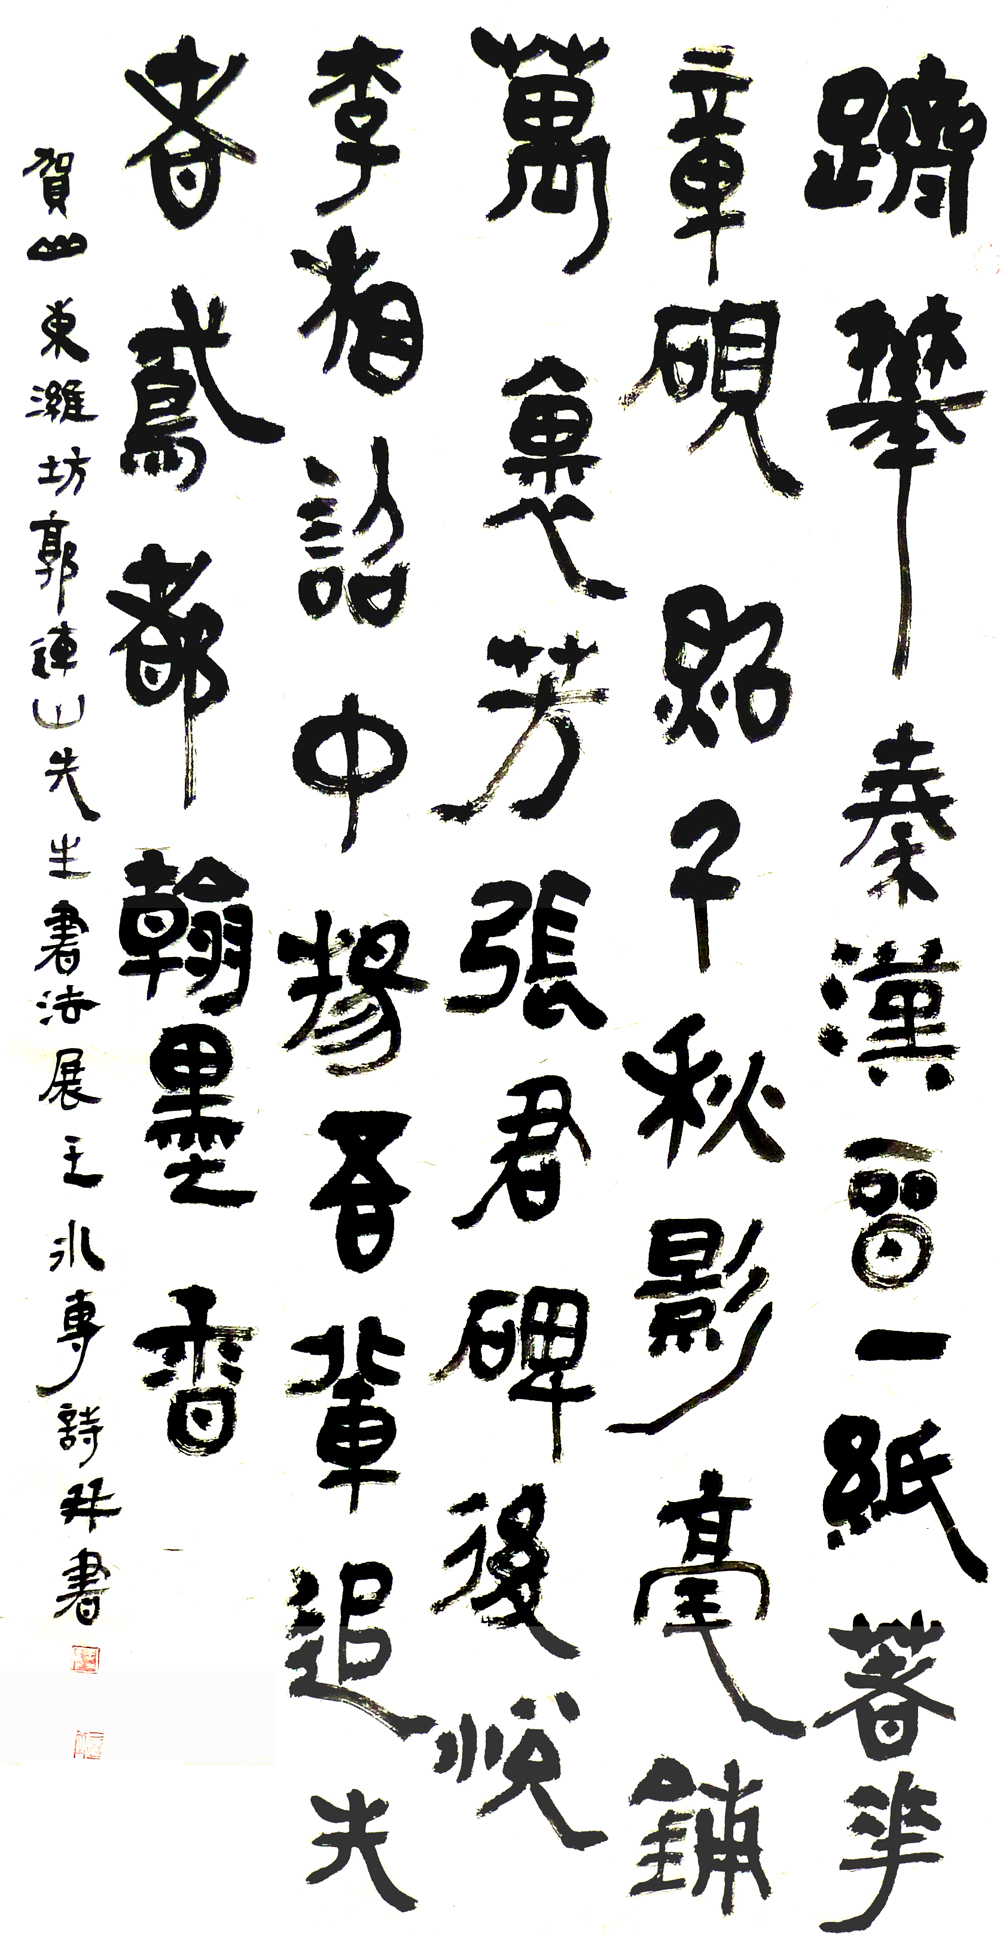 躋攀秦漢晉一紙著華
章硯照千秋影毫鋪
萬裹芳張君碑後悅
李相詔中揚吾輩追光
者鳶都翰墨香
賀山東濰坊郭連山先生書法展王專詩并書